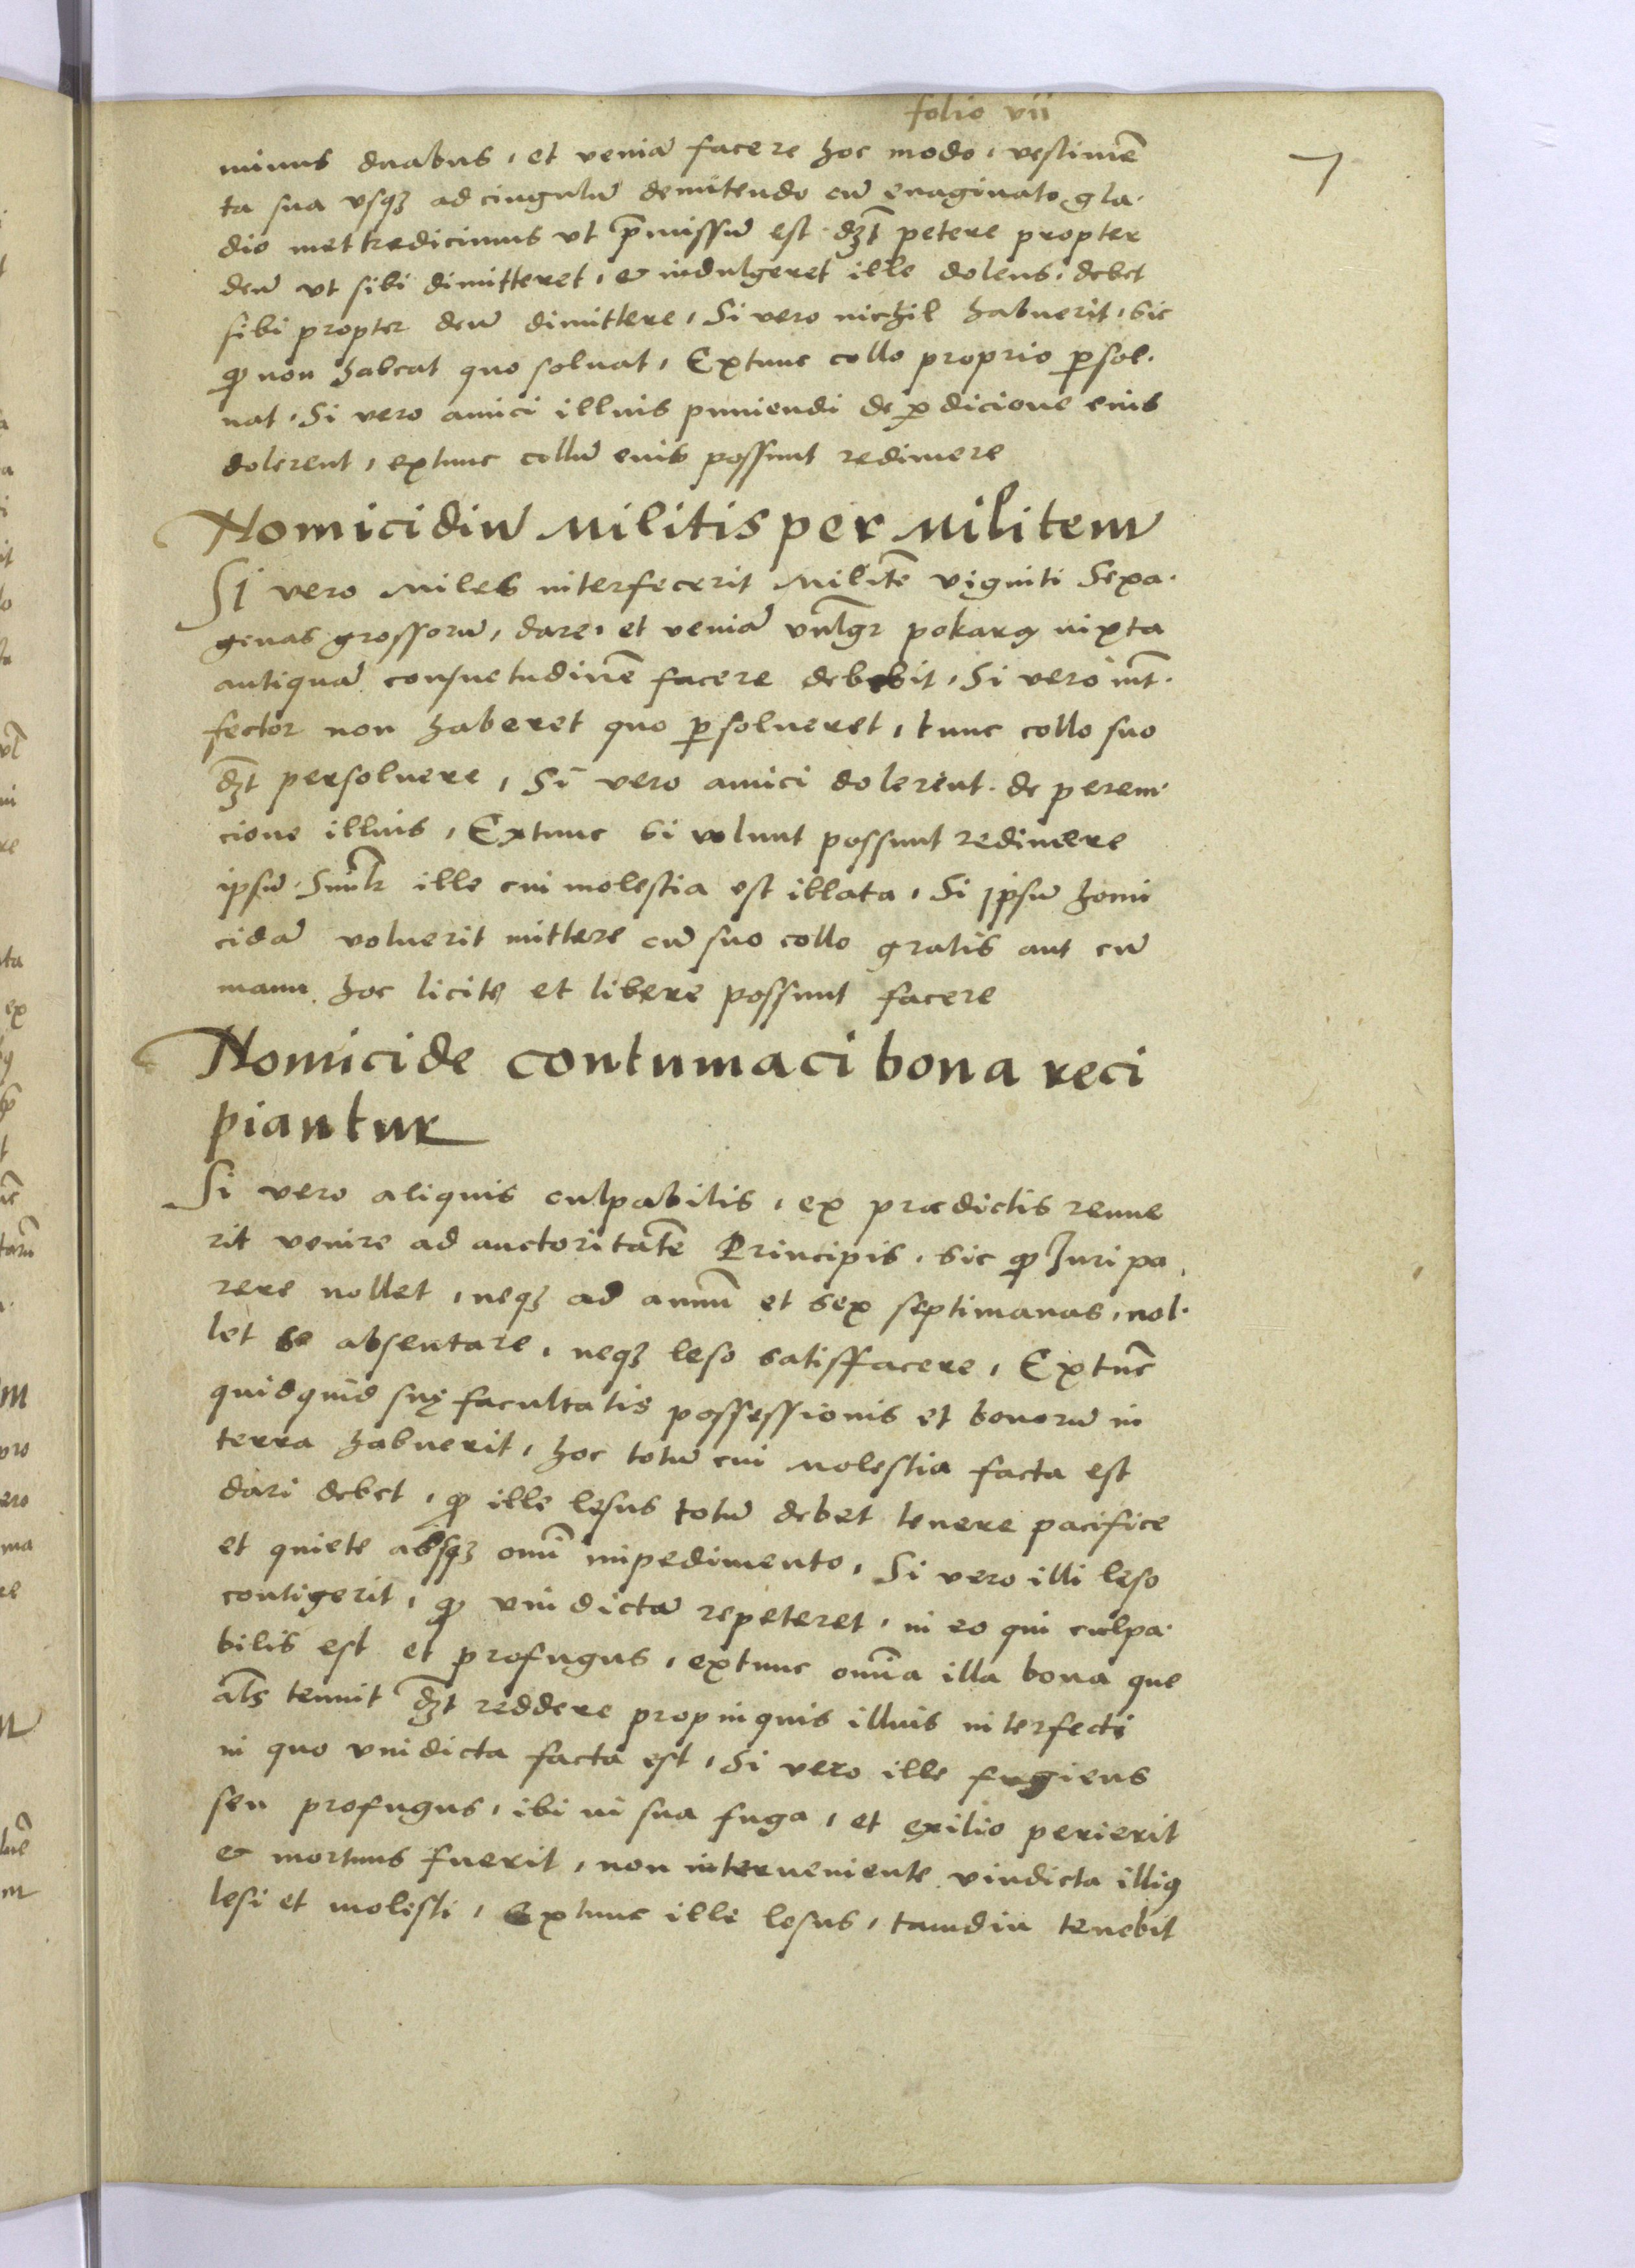 folio vii
7
minus duabus, et veniā facere hoc modo, vestimē
ta sua vsqꝫ ad cingulū demittendo cū euaginato gla·
dio met tredicimus vt p̄missū est dꝫt petere propter
deū vt sibi dimitteret, & indulgeret ille dolens, debet
sibi propter deū dimittere, Si vero nichil habuerit, sic
ꝙ non habeat quo soluat, Extunc collo proprio ꝑsol·
uat, Si vero amici illius puniendi de ꝑdicione eius
dolerent, extunc collū eius possunt redimere
Homicidiū Militis per Militem
Si vero Miles interfecerit Militē viginti Sexa·
genas grossorū, dare, et veniā vulgr pokarꝗ iuxta
antiquā consuetudinē facere debebit, Si vero int̄·
fector non haberet quo ꝑsolueret, tunc collo suo
dꝫt persoluere, Si vero amici dolerent de perem·
cione illius, Extunc si volunt possunt redimere
ipsū. Simlr ille cui molestia est illata, Si ipsū homi
cidā voluerit mittere cū suo collo gratis aut cū
manu hoc licite et libere possunt facere
Homicide contumaci bona reci
piantur
Si vero aliquis culpabilis, ex prædictis rennue
rit venire ad auctoritatē Principis, sic ꝙ Juri pa
rere nollet, neqꝫ ad annū et sex septimanas, nol·
let se absentare, neqꝫ leso satisfacere, Extūc
quidquid suę facultatis possessionis et bonorū in
terra habuerit, hoc totū cui Molestia facta est
dari debet, ꝙ ille lesus totū debet tenere pacifice
et quiete absqꝫ omī impedimento, Si vero illi leso
contigerit, ꝙ vindictā repeteret, in eo qui culpa·
bilis est et profugus, extunc omīa illa bona que
als̄ tenuit dꝫt reddere propinquis illius interfecti
in quo vindicta facta est, Si vero ille fugiens
seu profugus, ibi in sua fuga, et exilio perierit
& mortuus fuerit, non interueniente vindicta illiꝰ
lesi et molesti, Extunc ille lesus, tamdiu tenebit